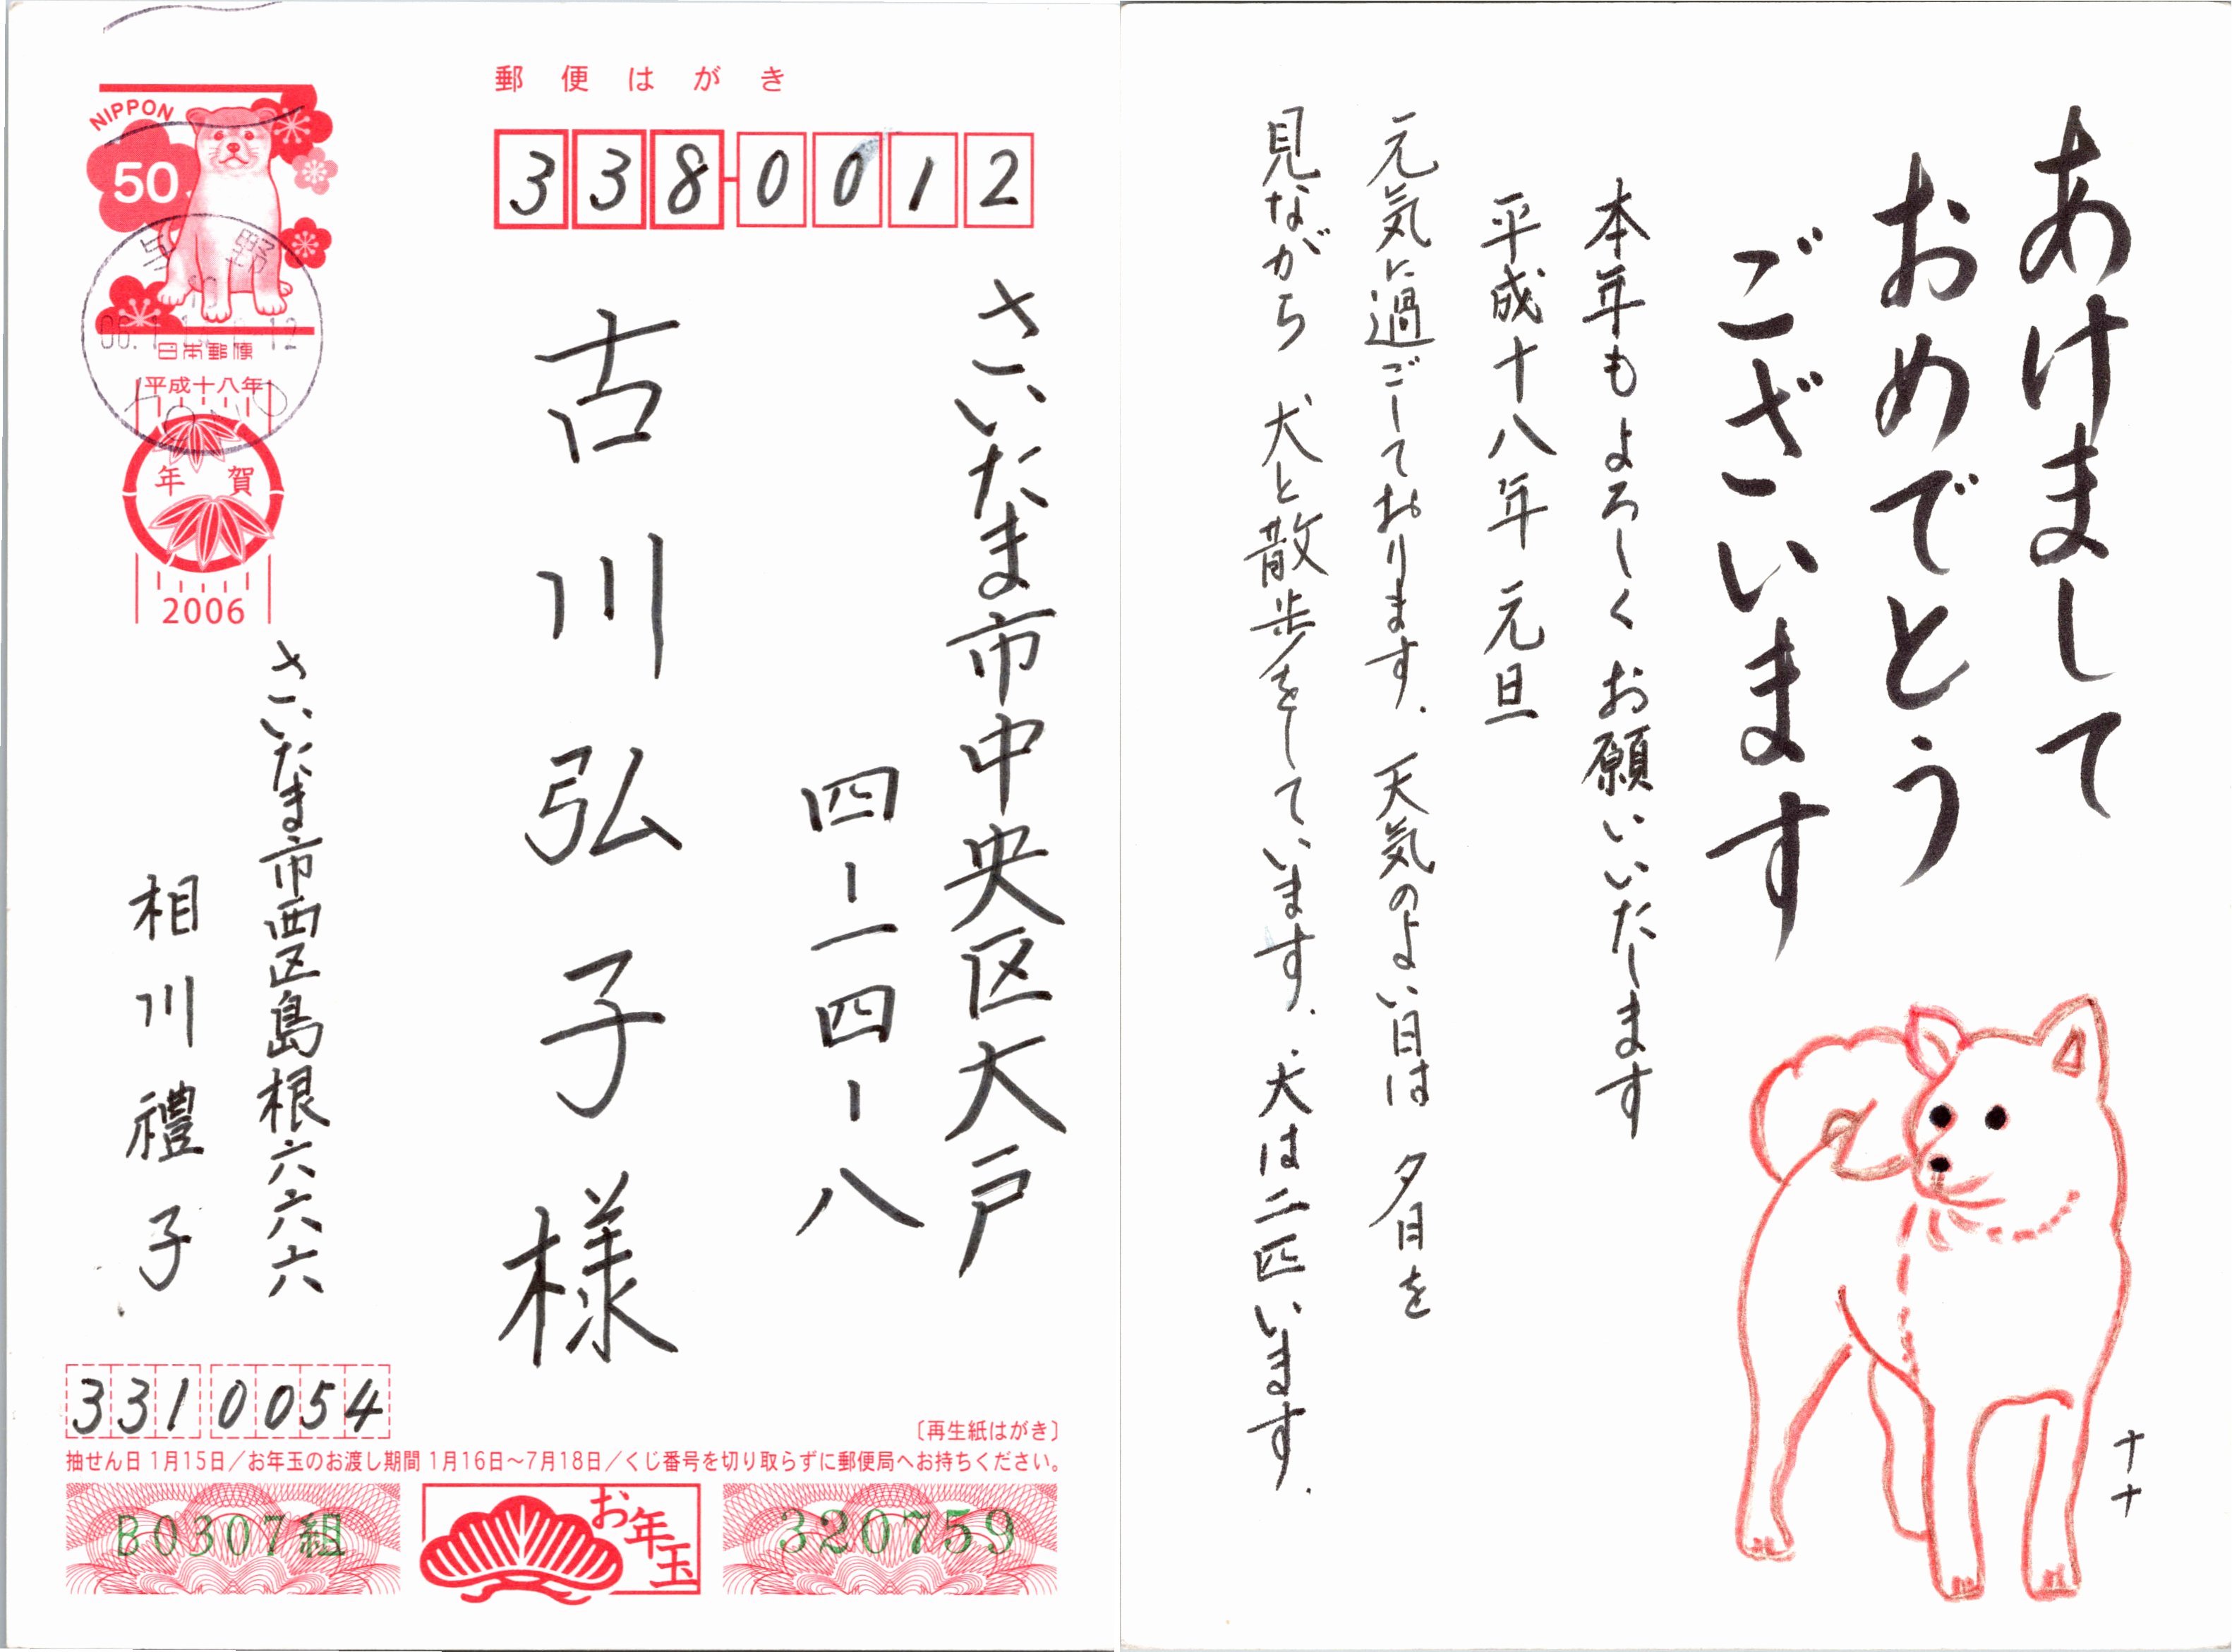 郵便はがき
NIPPON
50
日本郵便
平成十八年
年賀
2006
与野
338-0012
さいたま市中央区大戸
四-一四-八
古川弘子様
さいたま市西区島根六六六
相川禮子
3310054
〔再生紙はがき〕
抽せん日 1月15日/お年玉のお渡し期間 1月16日〜7月18日/くじ番号を切り取らずに郵便局へお持ちください。
B0307組
お年玉
320759
あけまして
おめでとう
ございます
本年もよろしくお願いいたします
平成十八年 元旦
元気に過ごしております. 天気のよい日は 夕日を
見ながら 犬と散歩をしています. 犬は二匹います.
ナナ